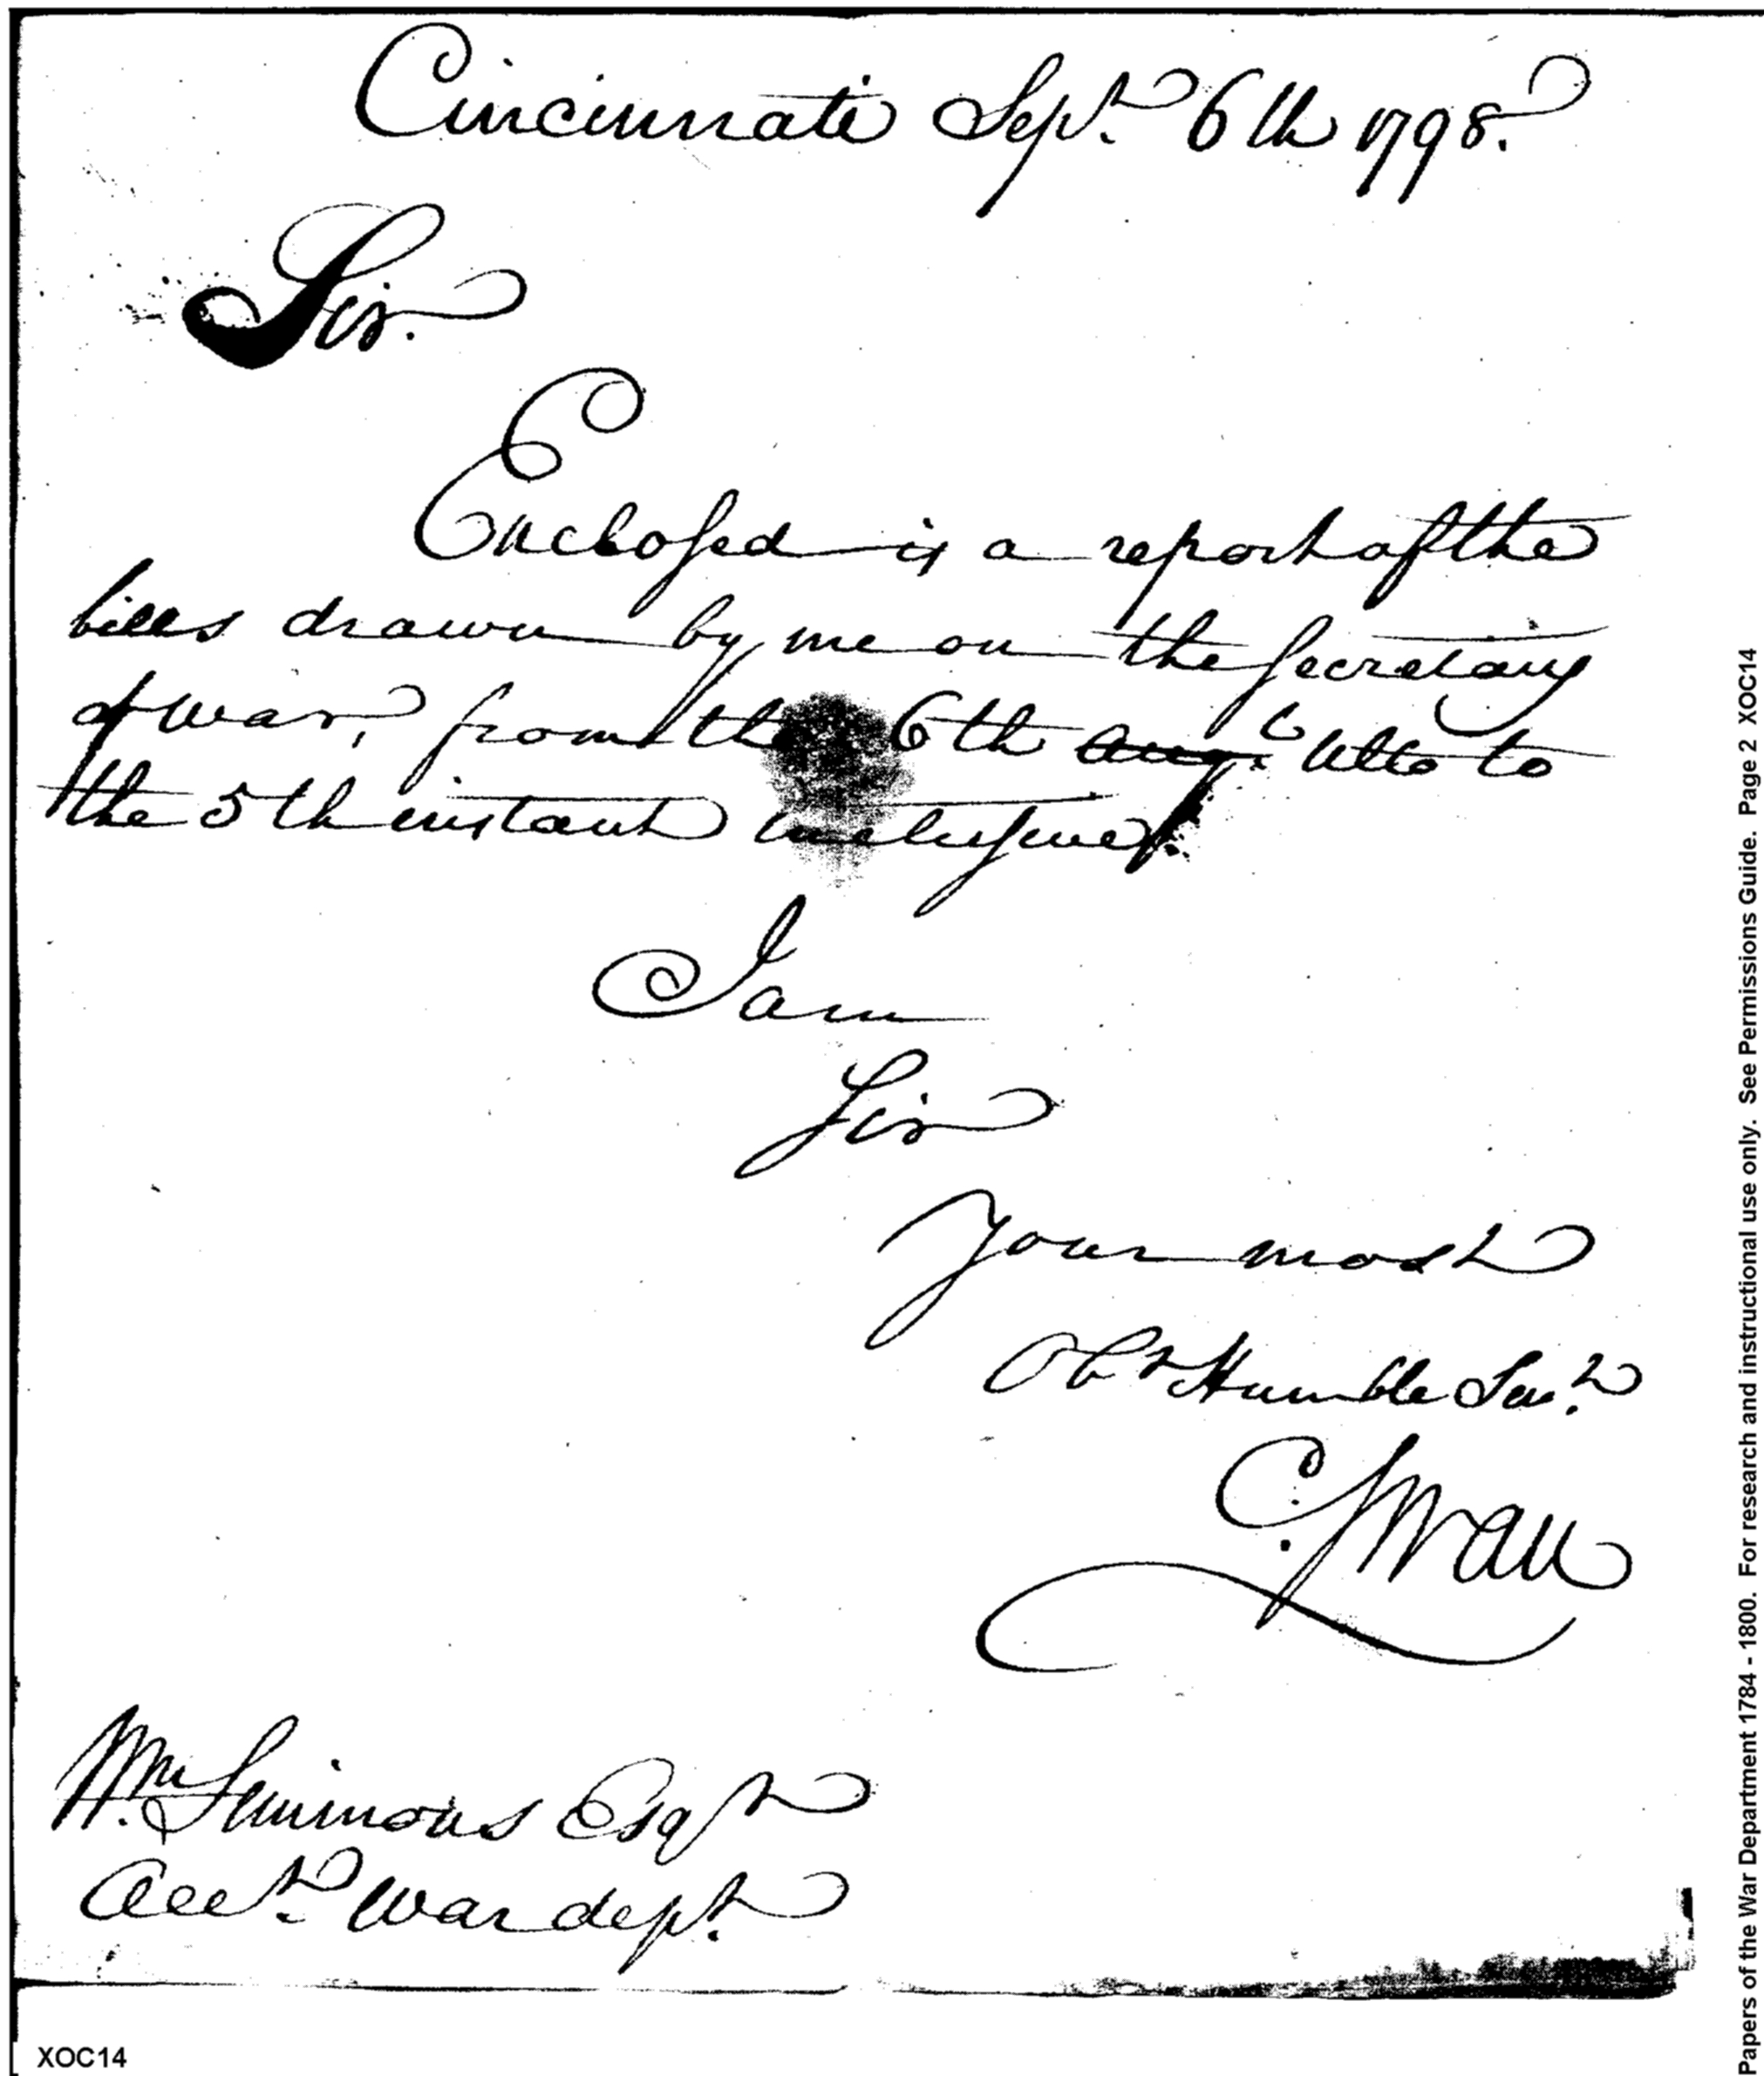 Cincinnati Sept. 6th 1798.
Sir.
Enclosed is a report of the
bills drawn by me on the Secretary
of war, from the 6th Augt. Ulto to
the 5th instant inclusive.
I am
Sir
Your most
Obt Humble Servt.
C. Swan
Wm. Simmons Esqr
Acct. War dept.
XOC14
Papers of the War Department 1784 - 1800. For research and instructional use only. See Permissions Guide. Page 2 XOC14